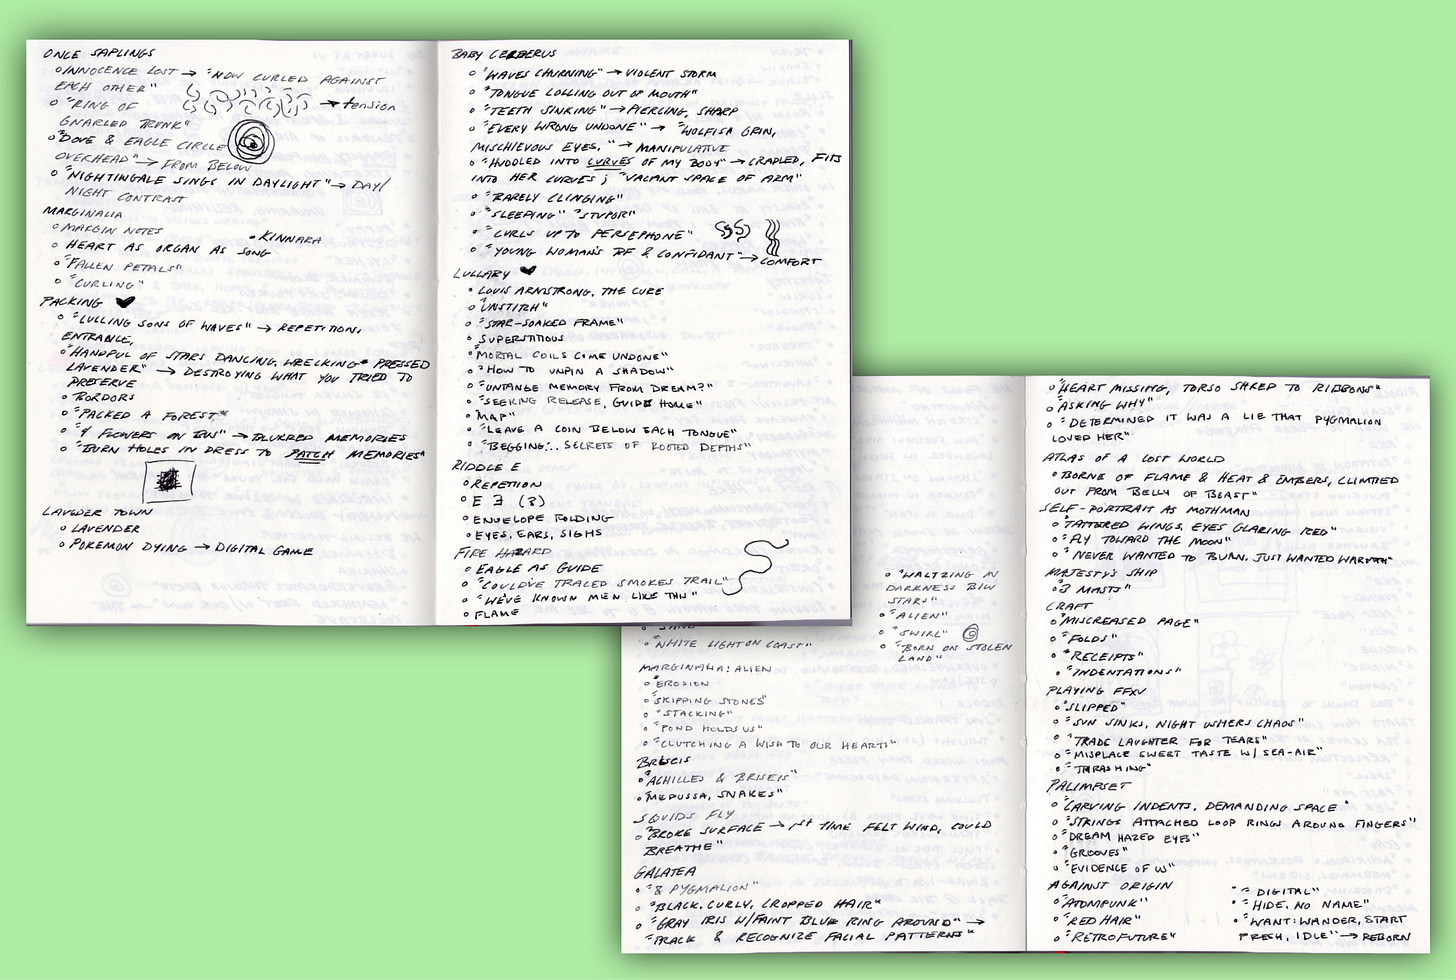 ONCE SAPLINGS
INNOCENCE LOST → "NOW CURLED AGAINST
EACH OTHER"
"RING OF → tension
GNARLED TRUNK"
"DOVE & EAGLE CIRCLE
OVERHEAD" → FROM BELOW
"NIGHTINGALE SINGS IN DAYLIGHT" → DAY/
NIGHT CONTRAST
MARGINALIA
MARGIN NOTES
• KINNARA
HEART AS ORGAN AS SONG
"FALLEN PETALS"
"CURLING"
PACKING ♥
"LULLING SONS OF WAVES" → REPETITION,
ENTRANCE,
"HANDFUL OF STARS DANCING, WRECKING" PRESSED
LAVENDER" → DESTROYING WHAT YOU TRIED TO
PRESERVE
BORDORS
"PACKED A FOREST"
"9 FLOWERS ON BUS" → BLURRED MEMORIES
"BURN HOLES IN DRESS TO PATCH MEMORIES"
LAVDER TOWN
LAVENDER
POKEMON DYING → DIGITAL GAME
BABY CERBERUS
"WAVES CHURNING" → VIOLENT STORM
"TONGUE LOLLING OUT OF MOUTH"
"TEETH SINKING" → PIERCING, SHARP
"EVERY WRONG UNDONE" → "WOLFISH GRIN,
MISCHIEVOUS EYES," → MANIPULATIVE
"HUDDLED INTO CURVES OF MY BODY" → CRADLED, FITS
INTO HER CURVES; "VACANT SPACE OF ARM"
"RARELY CLINGING"
"SLEEPING" "STUPOR"
"CURLS UP TO PERSEPHONE"
"YOUNG WOMAN'S BF & CONFIDANT" → COMFORT
LULLABY ♥
LOUIS ARMSTRONG, THE CURE
"UNSTITCH"
"STAR-SOAKED FRAME"
SUPERSTITIOUS
"MORTAL COILS COME UNDONE"
"HOW TO UNPIN A SHADOW"
"UNTANGE MEMORY FROM DREAM?"
"SEEKING RELEASE, GUIDE HOME"
"MAP"
"LEAVE A COIN BELOW EACH TONGUE"
"BEGGING... SECRETS OF ROOTED DEPTHS"
RIDDLE E
REPETION
E Ǝ (3)
ENVELOPE FOLDING
EYES, EARS, SIGHS
FIRE HAZARD
EAGLE AS GUIDE
"COULD'VE TRACED SMOKES TRAIL"
"WE'VE KNOWN MEN LIKE THIS"
FLAME
"WALTZING IN
DARKNESS BTW
STARS"
"ALIEN"
"SWIRL"
"BORN ON STOLEN
LAND"
"WHITE LIGHT ON COAST"
MARGINALIA: ALIEN
EROSION
"SKIPPING STONES"
"STACKING"
"POND HOLDS US"
"CLUTCHING A WISH TO OUR HEARTS"
BRISEIS
"ACHILLES & BRISEIS"
"MEDUSSA, SNAKES"
SQUIDS FLY
"BROKE SURFACE → 1st TIME FELT WIND, COULD
BREATHE"
GALATEA
"& PYGMALION"
"BLACK, CURLY, CROPPED HAIR"
"GRAY IRIS W/FAINT BLUE RING AROUND" →
"TRACK & RECOGNIZE FACIAL PATTERNS"
"HEART MISSING, TORSO SHRED TO RIBBONS"
"ASKING WHY"
"DETERMINED IT WAS A LIE THAT PYGMALION
LOVED HER"
ATLAS OF A LOST WORLD
"BORNE OF FLAME & HEAT & EMBERS, CLIMBED
OUT FROM BELLY OF BEAST"
SELF-PORTRAIT AS MOTHMAN
"TATTERED WINGS, EYES GLARING RED"
"FLY TOWARD THE MOON"
"NEVER WANTED TO BURN, JUST WANTED WARMTH"
MAJESTY'S SHIP
"3 MASTS"
CRAFT
"MISCREASED PAGE"
"FOLDS"
"RECEIPTS"
"INDENTATIONS"
PLAYING FFXV
"SLIPPED"
"SUN SINKS, NIGHT USHERS CHAOS"
"TRADE LAUGHTER FOR TEARS"
"MISPLACE SWEET TASTE W/ SEA-AIR"
"THRASHING"
PALIMPSET
"CARVING INDENTS, DEMANDING SPACE"
"STRINGS ATTACHED LOOP RINGS AROUND FINGERS"
"DREAM HAZED EYES"
"GROOVES"
"EVIDENCE OF US"
AGAINST ORIGIN
"ATOMPUNK"
"RED HAIR"
"RETROFUTURE"
"DIGITAL"
"HIDE, NO NAME"
"WANT: WANDER, START
FRESH, IDLE" → REBORN